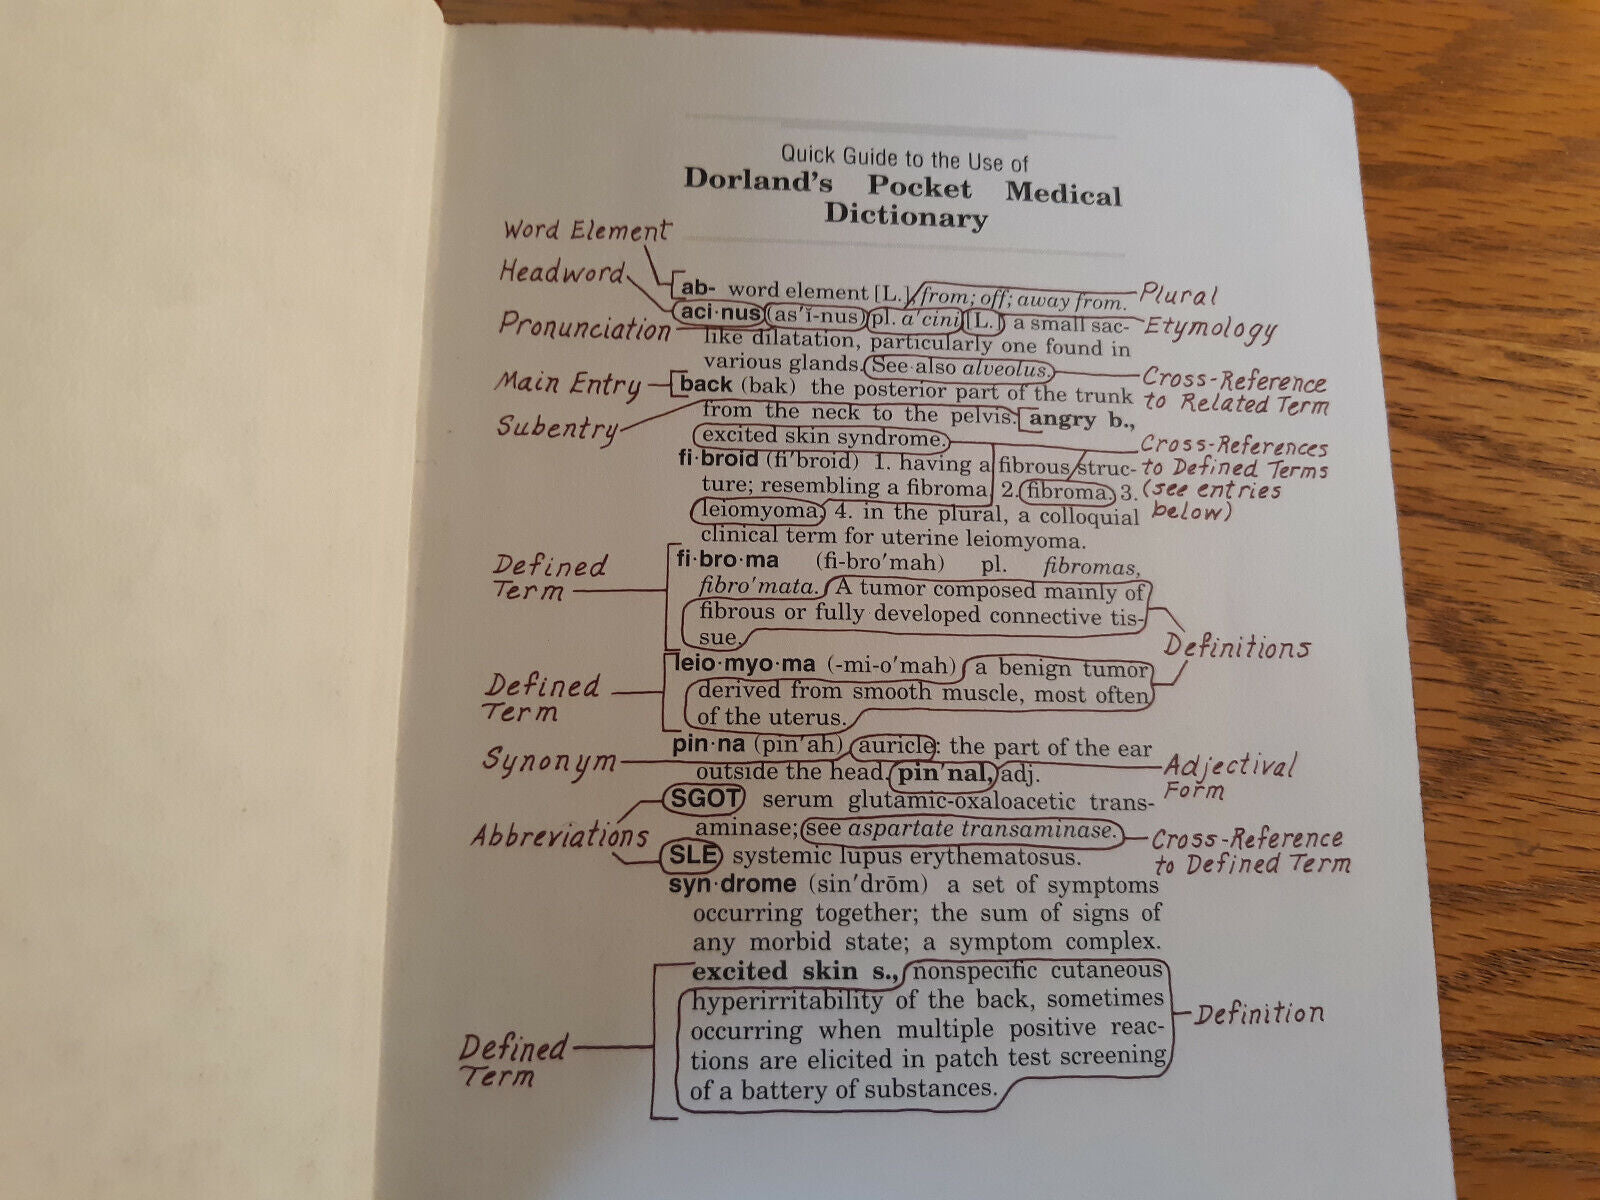 Quick Guide to the Use of
Dorland's Pocket Medical
Dictionary
Word Element
Headword
Pronunciation
Main Entry
Subentry
Defined
Term
Defined
Term
Synonym
Abbreviations
Defined
Term
ab- word element [L.], from; off; away from.
aci·nus (as′ĭ-nus) pl. a′cini [L.] a small sac-
like dilatation, particularly one found in
various glands. See also alveolus.
back (bak) the posterior part of the trunk
from the neck to the pelvis. angry b.,
excited skin syndrome.
fi·broid (fi′broid) 1. having a fibrous struc-
ture; resembling a fibroma 2. fibroma. 3.
leiomyoma. 4. in the plural, a colloquial
clinical term for uterine leiomyoma.
fi·bro·ma (fi-bro′mah) pl. fibromas,
fibro′mata. A tumor composed mainly of
fibrous or fully developed connective tis-
sue.
leio·myo·ma (-mi-o′mah) a benign tumor
derived from smooth muscle, most often
of the uterus.
pin·na (pin′ah) auricle: the part of the ear
outside the head. pin′nal, adj.
SGOT serum glutamic-oxaloacetic trans-
aminase; see aspartate transaminase.
SLE systemic lupus erythematosus.
syn·drome (sin′drōm) a set of symptoms
occurring together; the sum of signs of
any morbid state; a symptom complex.
excited skin s., nonspecific cutaneous
hyperirritability of the back, sometimes
occurring when multiple positive reac-
tions are elicited in patch test screening
of a battery of substances.
Plural
Etymology
Cross-Reference
to Related Term
Cross-References
to Defined Terms
(see entries
below)
Definitions
Adjectival
Form
Cross-Reference
to Defined Term
Definition